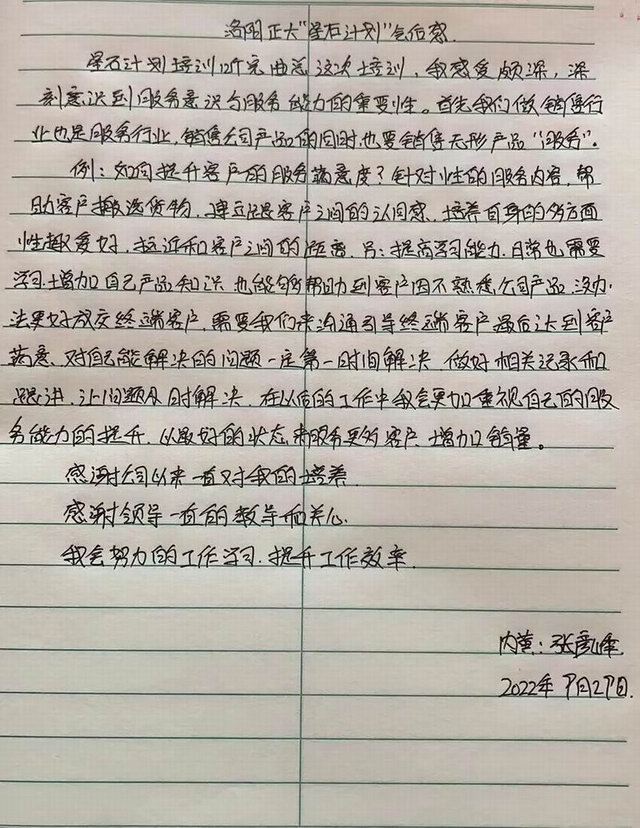 洛阳正大"星石计划"会后感.
星石计划培训听完曲总这次培训,我感受颇深,深
刻意识到服务意识与服务能力的重要性。首先我们做销售行
业也是服务行业,销售公司产品的同时也要销售无形产品"服务"。
例:如何提升客户的服务满意度?针对性的服务内容,帮
助客户搬运货物,建立还是客户之间的认同感,培养自身的多方面
性趣爱好,拉近和客户之间的距离,另:提高学习能力,日常也需要
学习增加自己产品知识,也能够帮助到客户因不熟悉公司产品,没办
法更好成交终端客户,需要我们来沟通引导终端客户最后达到客户
满意,对自己能解决的问题一定第一时间解决,做好相关记录和
跟进,让问题及时解决,在以后的工作中我会更加重视自己的服
务能力的提升,以最好的状态来服务更多客户,增加销量。
感谢公司以来一直对我的培养
感谢领导一直的教导和关心.
我会努力的工作学习.提升工作效率.
内黄:张
2022年